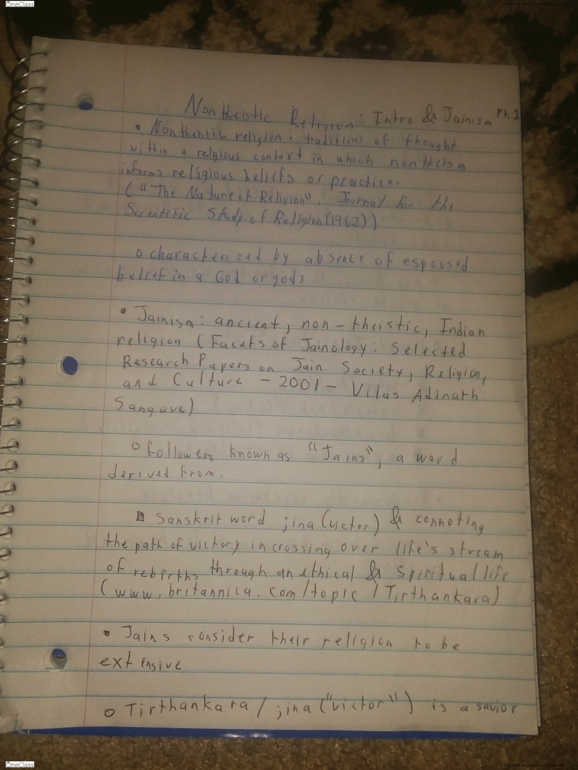 OneClass
Nontheistic Religion: Intro & Jainism Pt. 1
• Nontheistic religion: traditions of thought
within a religious context in which nontheism
informs religious beliefs or practices
("The Nature of Religion". Journal for the
Scientific Study of Religion (1962))
o characterized by absence of espoused
belief in a God or gods
• Jainism: ancient, non-theistic, Indian
religion (Facets of Jainology. Selected
Research Papers on Jain Society, Religion,
and Culture - 2001 - Vilas Adinath
Sangave)
o followers known as "Jains", a word
derived from.
Sanskrit word jina (victor) & connoting
the path of victory in crossing over life's stream
of rebirths through an ethical & spiritual life
(www.britannica.com/topic/Tirthankara)
• Jains consider their religion to be
extensive
o Tirthankara/jina ("victor") is a savior
OneClass
OneClass